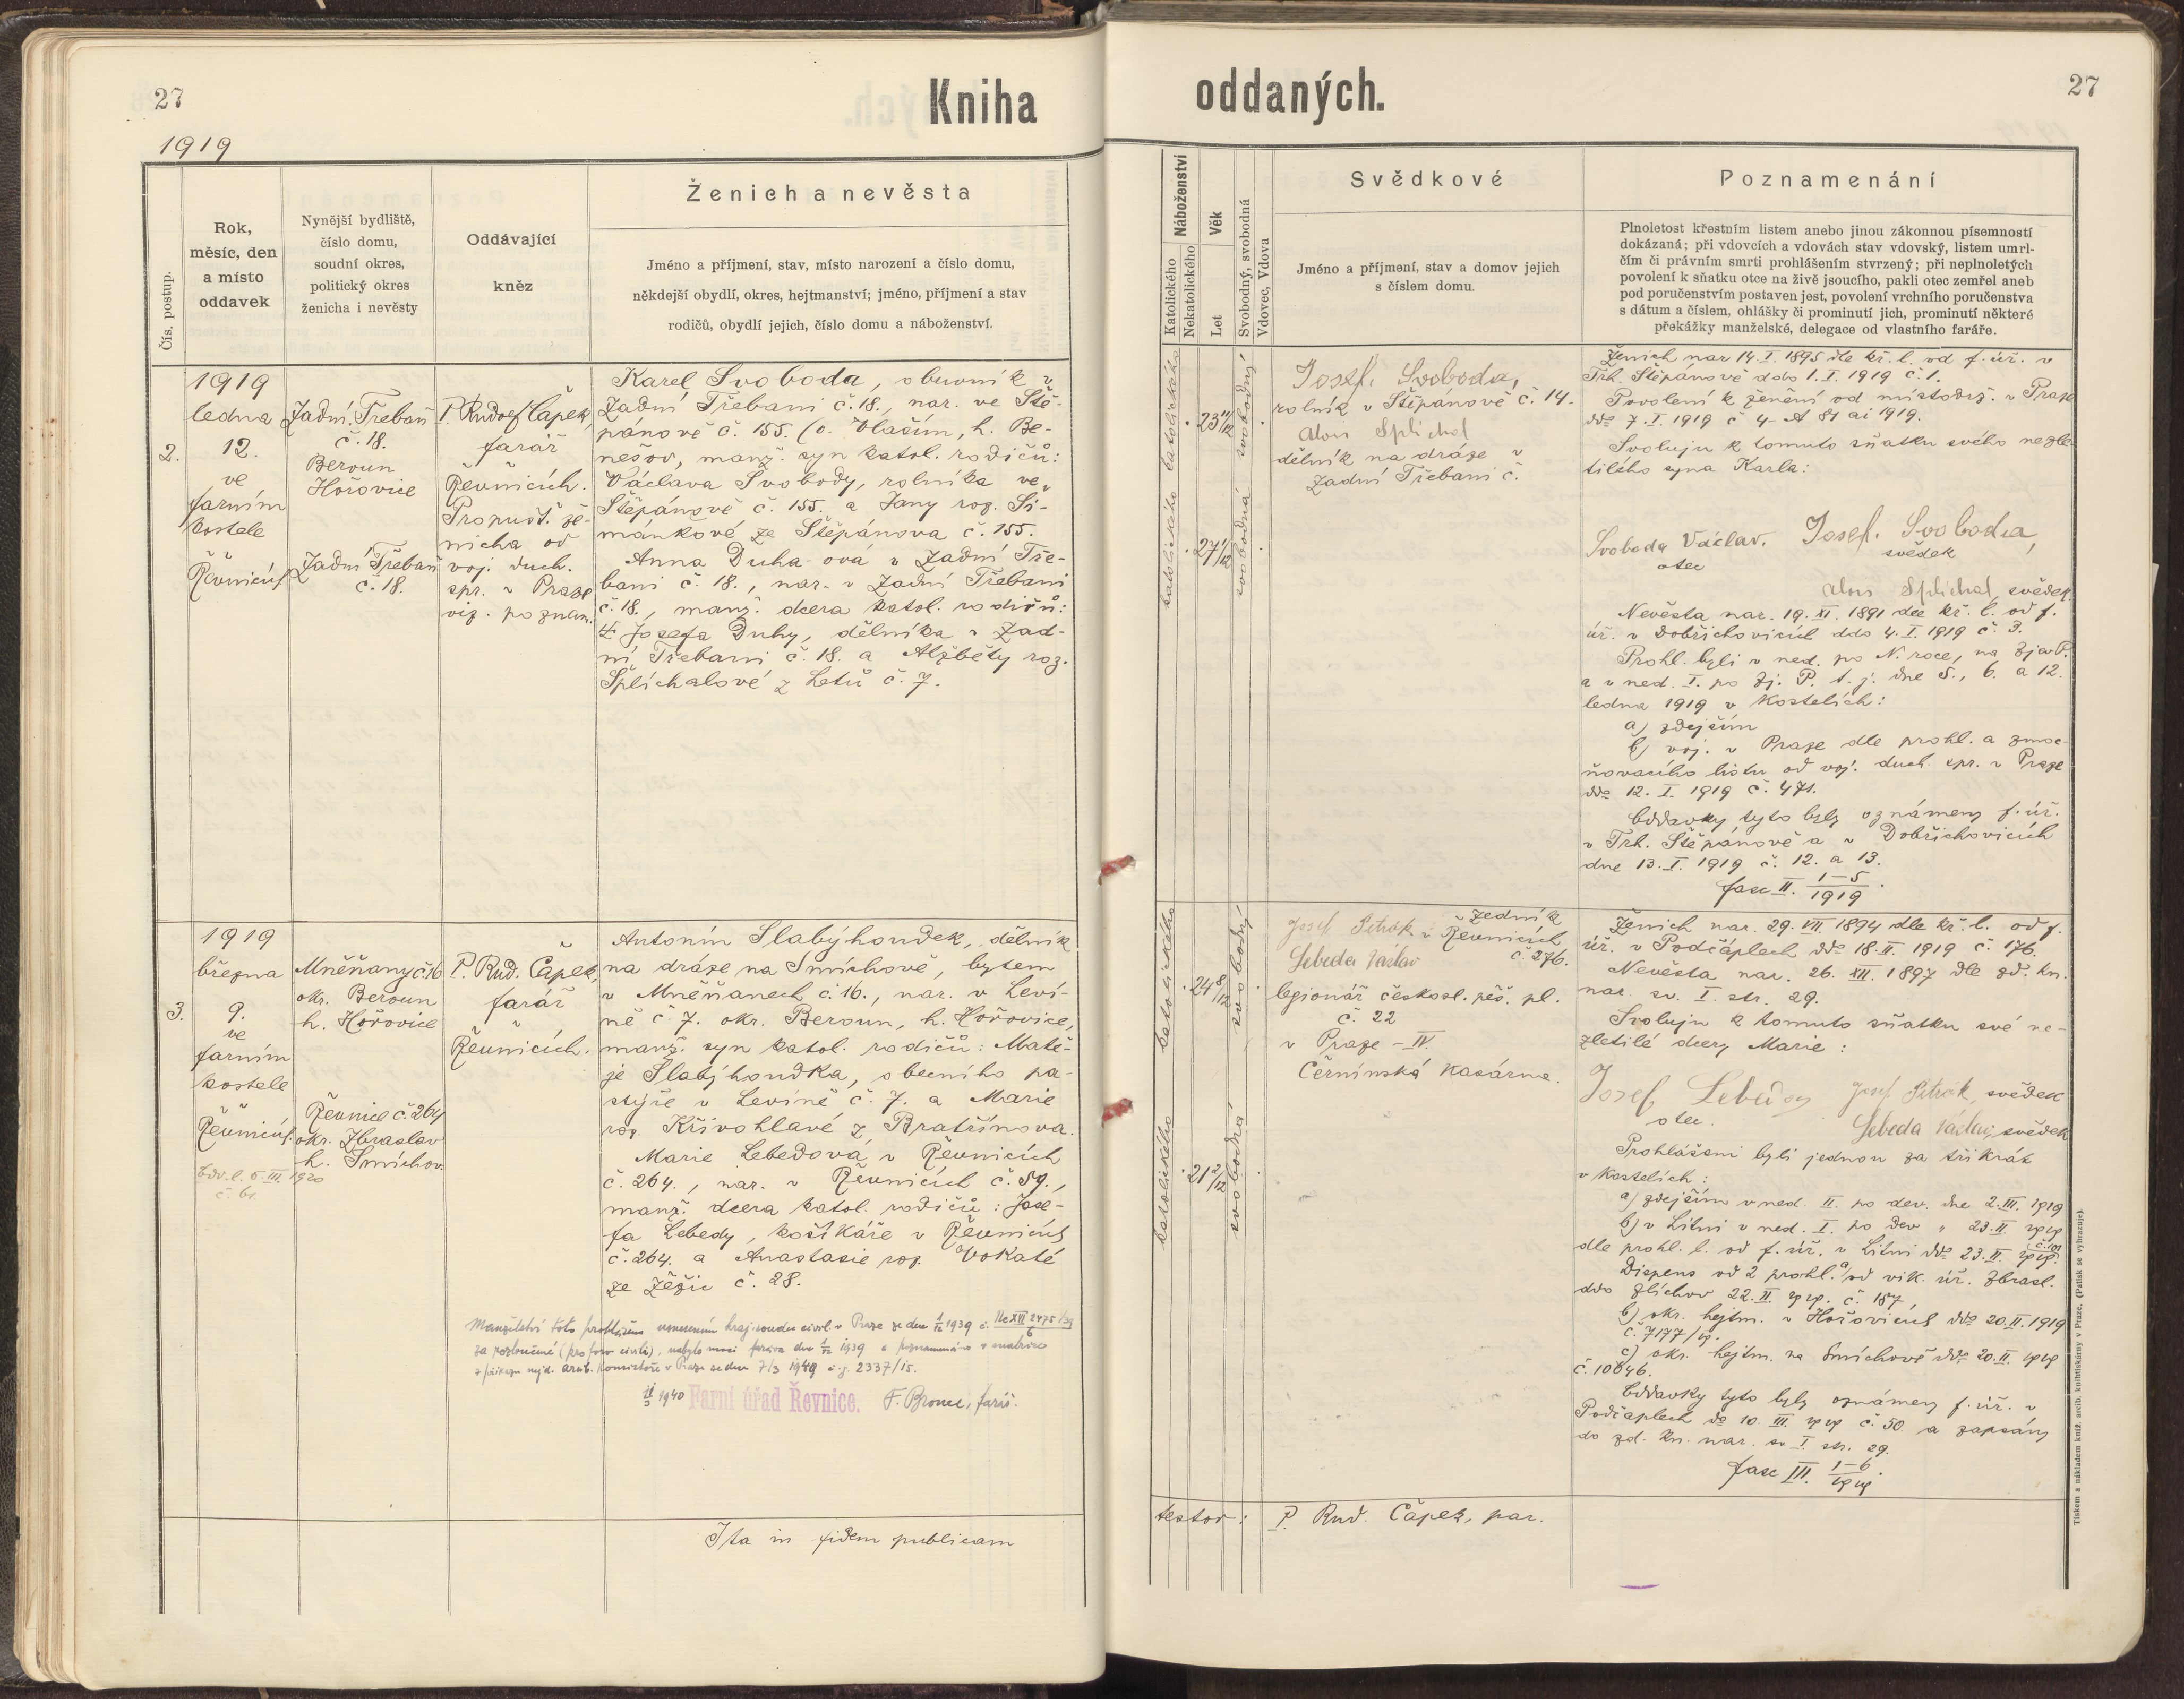 27
Kniha
oddaných.
27
1919
Čís. postup.
Rok,
měsíc, den
a místo
oddavek
Nynější bydliště,
číslo domu,
soudní okres,
politický okres
ženicha i nevěsty
Oddávající
kněz
Ženich a nevěsta
Jméno a příjmení, stav, místo narození a číslo domu,
někdejší obydlí, okres, hejtmanství; jméno, příjmení a stav
rodičů, obydlí jejich, číslo domu a náboženství.
Náboženství
Katolického
Nekatolického
Věk
Let
Svobodný, svobodná
Vdovec, Vdova
Svědkové
Jméno a příjmení, stav a domov jejich
s číslem domu.
Poznamenání
Plnoletost křestním listem anebo jinou zákonnou písemností
dokázaná; při vdovcích a vdovách stav vdovský, listem umrl-
čím či právním smrti prohlášením stvrzený; při neplnoletých
povolení k sňatku otce na živě jsoucího, pakli otec zemřel aneb
pod poručenstvím postaven jest, povolení vrchního poručenstva
s dátum a číslem, ohlášky či prominutí jich, prominutí některé
překážky manželské, delegace od vlastního faráře.
2.
1919
ledna
12.
ve
farním
kostele
Řevnicích
Zadní Třebaň
č. 18.
Beroun
Hořovice
Zadní Třebaň
č. 18.
P. Rudolf Čapek,
farář
Řevnicích.
Propušt. že-
nicha od
voj. duch.
spr. v Praze
viz. poznam.
Karel Svoboda, obuvník v
Zadní Třebani č. 18., nar. ve Ště-
pánově č. 155. (o. Vlašim, h. Be-
nešov, manž. syn katol. rodičů:
Václava Svobody, rolníka ve
Štěpánově č. 155. a Jany roz. Ši-
mánkové ze Štěpánova č. 155.
Anna Duha-ová v Zadní Tře-
bani č. 18., nar. v Zadní Třebani
č. 18., manž. dcera katol. rodičů:
Josefa Duhy, dělníka v Zad-
ní Třebani č. 18. a Alžběty roz.
Šplíchalové z Letů č. 7.
katolického
katolického
23 11/12
27 1/12
svobodný
svobodná
Josef. Svoboda,
rolník v Štěpánově č. 14.
Alois Šplíchal
dělník na dráze v
Zadní Třebani č.
Ženich nar 14. I. 1895 dle kř. l. od f. úř. v
Trh. Štěpánově ddo 1. I. 1919 č. 1.
Povolení k ženění od místodrž. v Praze
ddo 7. I. 1919 č 4-A 81 ai 1919.
Svoluju k tomuto sňatku svého nezle-
tilého syna Karla:
Svoboda Václav.
otec
Josef. Svoboda,
svědek
Alois Šplíchal, svědek.
Nevěsta nar. 19. XI. 1891 dle kř. l. od f.
úř. v Dobřichovicích ddo 4. I. 1919 č. 3.
Prohl. byli v ned. po N. roce, na Zjev P.
a v ned. I. po Zj. P. t. j. dne 5., 6. a 12.
ledna 1919 v kostelích:
a) zdejším
b) voj. v Praze dle prohl. a zmoc-
ňovacího listu od voj. duch. spr. v Praze
ddo 12. I. 1919 č. 471.
Oddavky tyto byly oznámeny f. úř.
v Trh. Štěpánově a v Dobřichovicích
dne 13. I. 1919 č. 12. a 13.
fasc II. 1-5/1919.
3.
1919
března
9.
ve
farním
kostele
Řevnicích.
Odd. l. 5. III. 1920
č. 61
Mněňany č. 16
okr. Beroun
h. Hořovice
Řevnice č. 264
okr. Zbraslav
h. Smíchov
P. Rud. Čapek,
farář
Řevnicích.
Antonín Slabýhoudek, dělník
na dráze na Smíchově, bytem
v Mněňanech č. 16., nar. v Leví-
ně č. 7. okr. Beroun, h. Hořovice,
manž. syn katol. rodičů: Matě-
je Slabýhoudka, obecního pa-
stýře v Levíně č. 7. a Marie
roz. Křivohlavé z Bratřínova.
Marie Lebedová v Řevnicích
č. 264., nar. v Řevnicích č. 59.,
manž. dcera katol. rodičů: Jose-
fa Lebedy, košíkáře v Řevnicích
č. 264. a Anastasie roz. Vokaté
ze Zěžic č. 28.
Manželství toto prohlášeno usnesením kraj. soudu civil. v Praze ze dne
za rozloučené (pro foro civili), nabylo moci práva dne 1939 a poznamenáno v matrice
z příkazu nejd. arcib. konsistoře v Praze ze dne 7/3 1949 č. j. 2337/15.
1940 Farní úřad Řevnice. F. Brouc, farář.
katolického
katolického
24 8/12
21 2/12
svobodný
svobodná
Josef Petrák v zedník
Řevnicích
č. 276.
Lebeda Václav
legionář českosl. pěš. pl.
č. 22
v Praze - IV.
Černínská kasárna.
Ženich nar. 29. VII. 1894 dle kř. l. od f.
úř. v Podčáplech ddo 18. II. 1919 č. 176.
Nevěsta nar. 26. XII. 1897 dle zd. kn.
nar. sv. I. str. 29.
Svoluju k tomuto sňatku své ne-
zletilé dcery Marie:
Josef Lebeda
otec.
Josef Petrák, svědek
Lebeda Václav, svědek
Prohlášeni byli jednou za třikrát
v kostelích:
a) zdejším v ned. II. po dev. dne 2. III. 1919
b) v Litni v ned. I. po dev " 23. II. 1919
dle prohl. l. od f. úř. v Litni ddo 23. II. 1919. č. 101
Dispens od 2 prohl. a) od vik. úř. Zbrasl.
ddo Zlíchov 22. II. 1919. č. 187,
b) okr. hejtm. v Hořovicích ddo 20. II. 1919
č. 7177/19.
c) okr. hejtm. na Smíchově ddo 20. II. 1919
č. 10646.
Oddavky tyto byly oznámeny f. úř. v
Podčaplech do 10. III. 1919 č. 50. a zapsány
do zd. kn. nar. sv I. str. 29.
fasc III. 1-6/1919.
Ita in fidem publicam
testor: P. Rud. Čapek, par.
Tiskem a nákladem kníž. arcib. knihtiskárny v Praze. (Patisk se vyhrazuje).